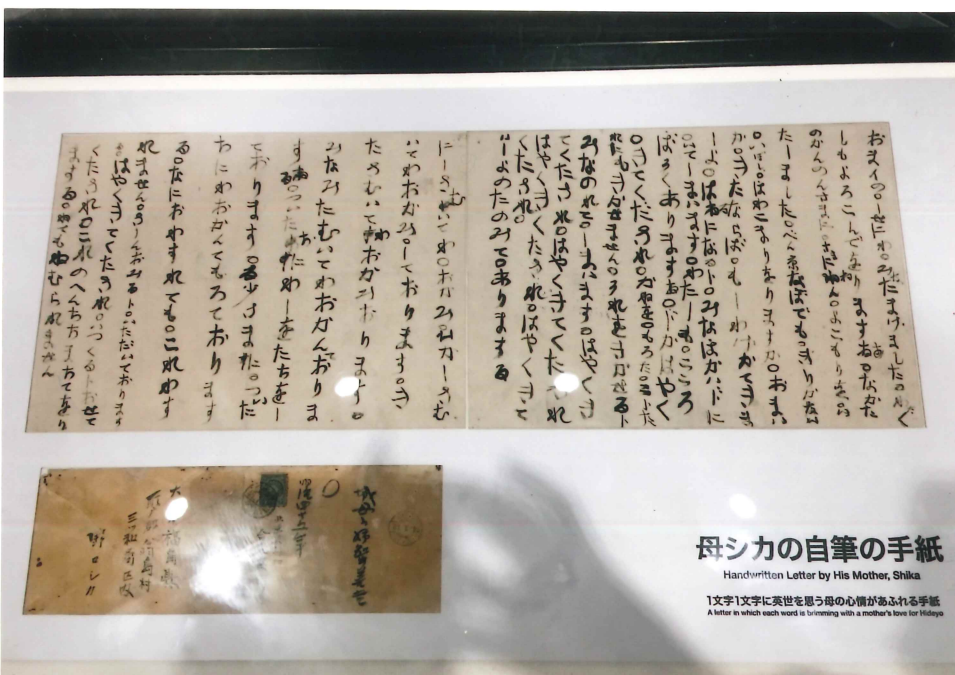 おまイの。しせにわ。みなたまけました。わたく
しもよろこんでをりまする。なかた
のかんのんさまに。さまにねん。よこもりを。い
たしました。べん京なぼでも。きりかない
。いぼし。ほわこまりをりますか。おまい
か。きたならば。もしわけかてきま
しよ。はるになるト。みなほかいドに
。いてしまいます。わたしも。こころ
ぼそくありまする。ドかはやく
。きてくだされ。かねを。もろた。こトた
れにもきかせません。それをきかせるト
みなのまれて。しまいます。はやくき
てくたされ。はやくきてくたされ
はやくきてくたされ。はやくきて
くたされ。
いしよのたのみて。ありまする
にしさむいてわ。おかみ。ひかしさむ
いてわおかみ。しております。き
たさむいてわおかみおります。
みなみたむいてわおかんておりま
する。ついたちにわしをたちをし
ております。ゐ少さまに。ついた
ちにわおかんてもろております
る。なにおわすれても。これわす
れません。さしんおみるト。いただいております
はやくきてくたされ。いつくるトおせて
くたされ。これのへんちちまちてをり
まする。ねてもねむられません
母シカの自筆の手紙
Handwritten Letter by His Mother, Shika
1文字1文字に英世を思う母の心情があふれる手紙
A letter in which each word is brimming with a mother's love for Hideyo